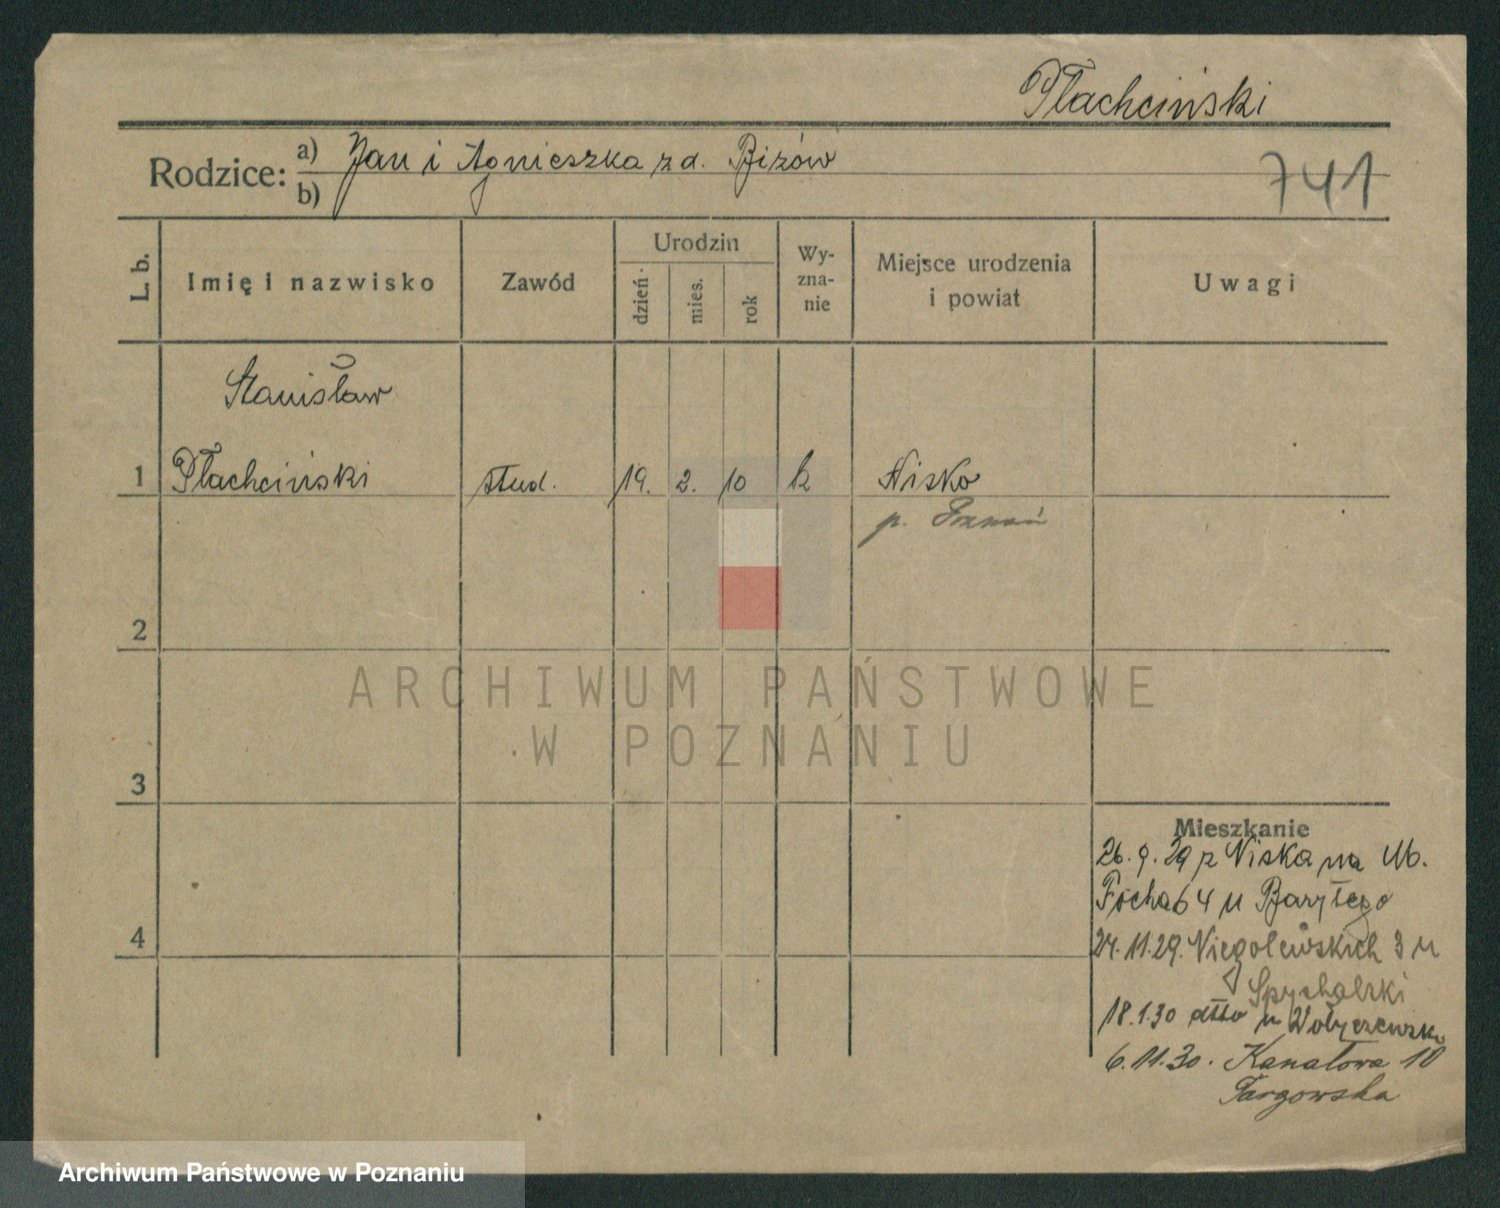 Płachciński
Rodzice: a) Jan i Agnieszka z d. Bizów
b)
741
L. b.
Imię i nazwisko
Zawód
Urodzin
dzień
mies.
rok
Wy-
zna-
nie
Miejsce urodzenia
i powiat
Uwagi
Stanisław
1 Płachciński stud. 19. 2. 10 k Nisko
p. Poznań
2
3
4
Mieszkanie
26. 9. 29 z Niska na M.
Focha 64 u Baryłego
24. 11. 29. Niegolewskich 3 u
Spychalski
18. 1. 30 dtto u
6. 11. 30. Kanałowa 10
Targowska
ARCHIWUM PAŃSTWOWE
W POZNANIU
Archiwum Państwowe w Poznaniu